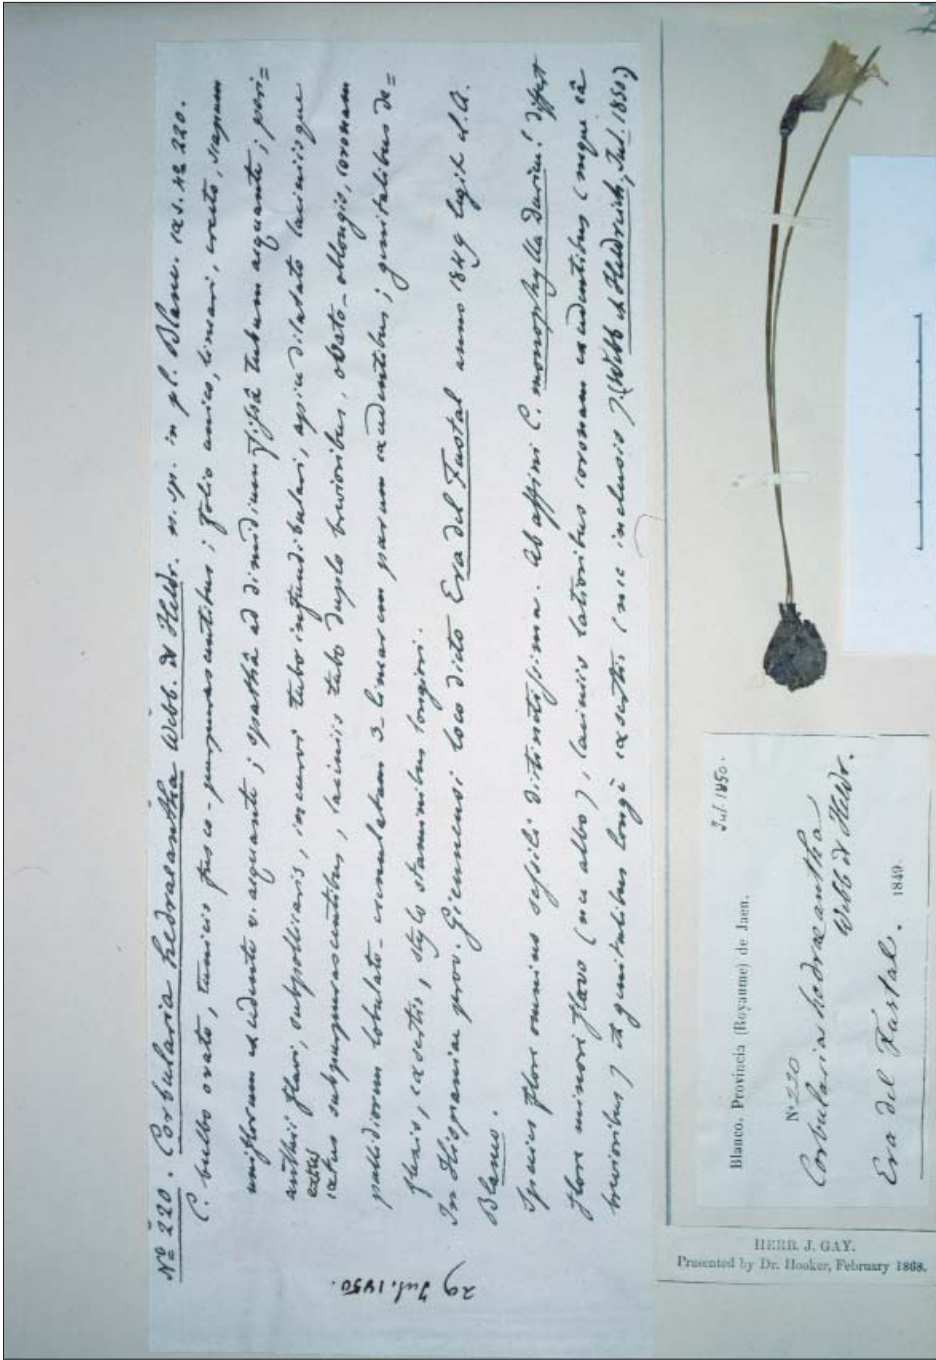 Nº 220. Corbularia hedraeantha Webb. et Heldr. n. sp. in pl. Blanc. exs. nº 220.
C. bulbo ovato, tunicis fusco-purpurascentibus; folio unico, lineari, erecto, scapum
uniflorum excedente v. aequante; spathâ ad dimidium fissâ tubum aequante; peri=
anthii flavi, subpollicaris, incurvi tubo infundibulari, apice dilatato laciniisque
extus subpurpurascentibus, laciniis tubo duplo brevioribus, ovato-oblongis, coronam
pallidiorem lobulato-crenulatam 3-linearem parum excedentibus; genitalibus de=
flexis, exsertis, stylo staminibus longiori.
In Hispaniae prov. Giennensi loco dicto Era del Fustal anno 1849 legit d. A.
Blanco.
Species flore omnino sessili distinctissima. Ab affini C. monophylla Durieui differt
flore minori flavo (nec albo), laciniis latioribus coronam excedentibus (neque eâ
brevioribus) et genitalibus longè exsertis (nec inclusis). (Webb et Heldreich, Jul. 1850.)
29 Jul. 1850.
Jul. 1850.
Blanco. Provincia (Royaume) de Jaen.
Nº 220
Corbularia hedraeantha
Webb et Heldr.
Era del Fustal. 1849.
HERB. J. GAY.
Presented by Dr. Hooker, February 1868.